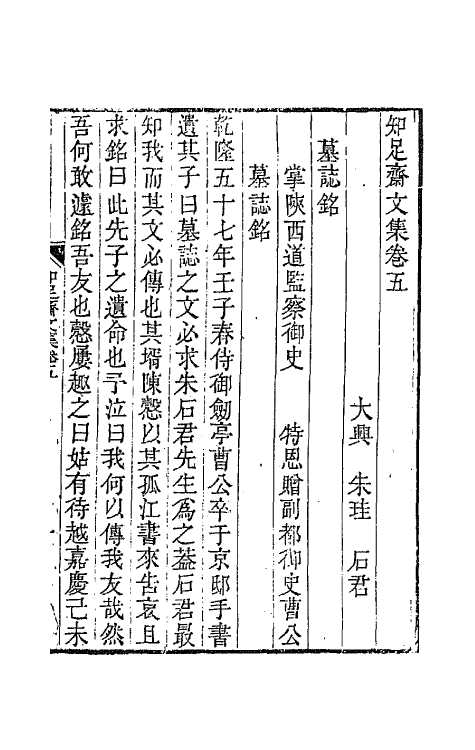 知足齋文集卷五
大興　朱珪　石君
墓誌銘
掌陝西道監察御史　特恩贈副都御史曹公
墓誌銘
乾隆五十七年壬子春侍御劒亭曹公卒于京邸手書
遺其子曰墓誌之文必求朱石君先生爲之葢石君最
知我而其文必傳也其壻陳慤以其孤江書來告哀且
求銘曰此先子之遺命也予泣曰我何以傳我友哉然
吾何敢遽銘吾友也慤屢趣之曰姑有待越嘉慶己未
知足齋文集卷五